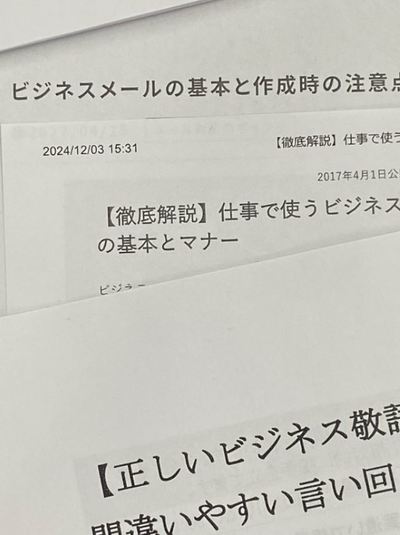 ビジネスメールの基本と作成時の注意点
2024/12/03 15:31
【徹底解説】仕事で使う
2017年4月1日公
【徹底解説】仕事で使うビジネス
の基本とマナー
【正しいビジネス敬語
間違いやすい言い回